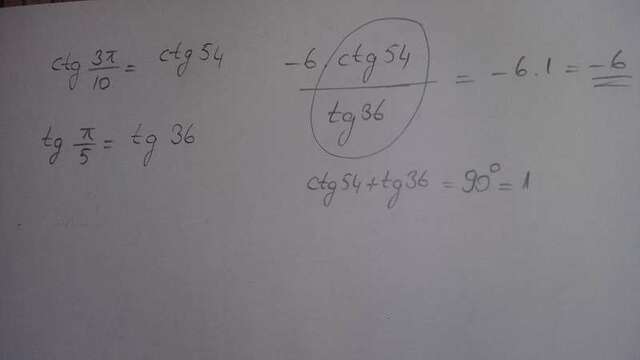 ctg 3π/10 = ctg 54
tg π/5 = tg 36
-6 ctg 54 / tg 36 = -6 . 1 = -6
ctg 54 + tg 36 = 90° = 1